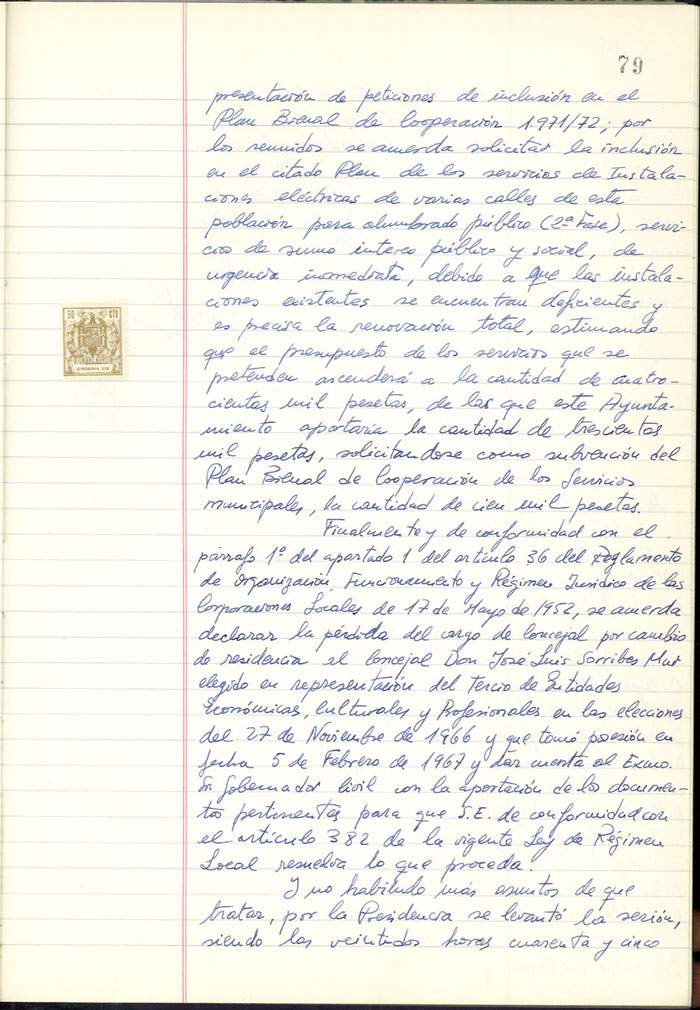 79
presentación de peticiones de inclusión en el
Plan Bienal de Cooperación 1.971/72; por
los reunidos se acuerda solicitar la inclusión
en el citado Plan de los servicios de Instala-
ciones eléctricas de varias calles de esta
población para alumbrado público (2ª Fase), servi-
cios de sumo interes público y social, de
urgencia inmediata, debido a que las instala-
ciones existentes se encuentran deficientes y
es precisa la renovación total, estimando
que el presupuesto de los servicios que se
pretenden ascenderá a la cantidad de cuatro-
cientas mil pesetas, de las que este Ayunta-
miento aportaría la cantidad de trescientas
mil pesetas, solicitandose como subvención del
Plan Bienal de Cooperación de los Servicios
municipales, la cantidad de cien mil pesetas.
Finalmente y de conformidad con el
párrafo 1º del apartado 1 del artículo 36 del Reglamento
de Organización, Funcionamiento y Régimen Jurídico de las
Corporaciones Locales de 17 de Mayo de 1952, se acuerda
declarar la pérdida del cargo de Concejal por cambio
de residencia el Concejal Don José Luis Sorribes Mur
elegido en representación del Tercio de Entidades
Económicas, Culturales y Profesionales en las elecciones
del 27 de Noviembre de 1966 y que tomó posesión en
fecha 5 de Febrero de 1967 y dar cuenta al Excmo.
Sr. Gobernador Civil con la aportación de los documen-
tos pertinentes para que S.E. de conformidad con
el artículo 382 de la vigente Ley de Régimen
Local resuelva lo que proceda.
Y no habiendo más asuntos de que
tratar, por la Presidencia se levantó la sesión,
siendo las veintidos horas cuarenta y cinco
50 CTS